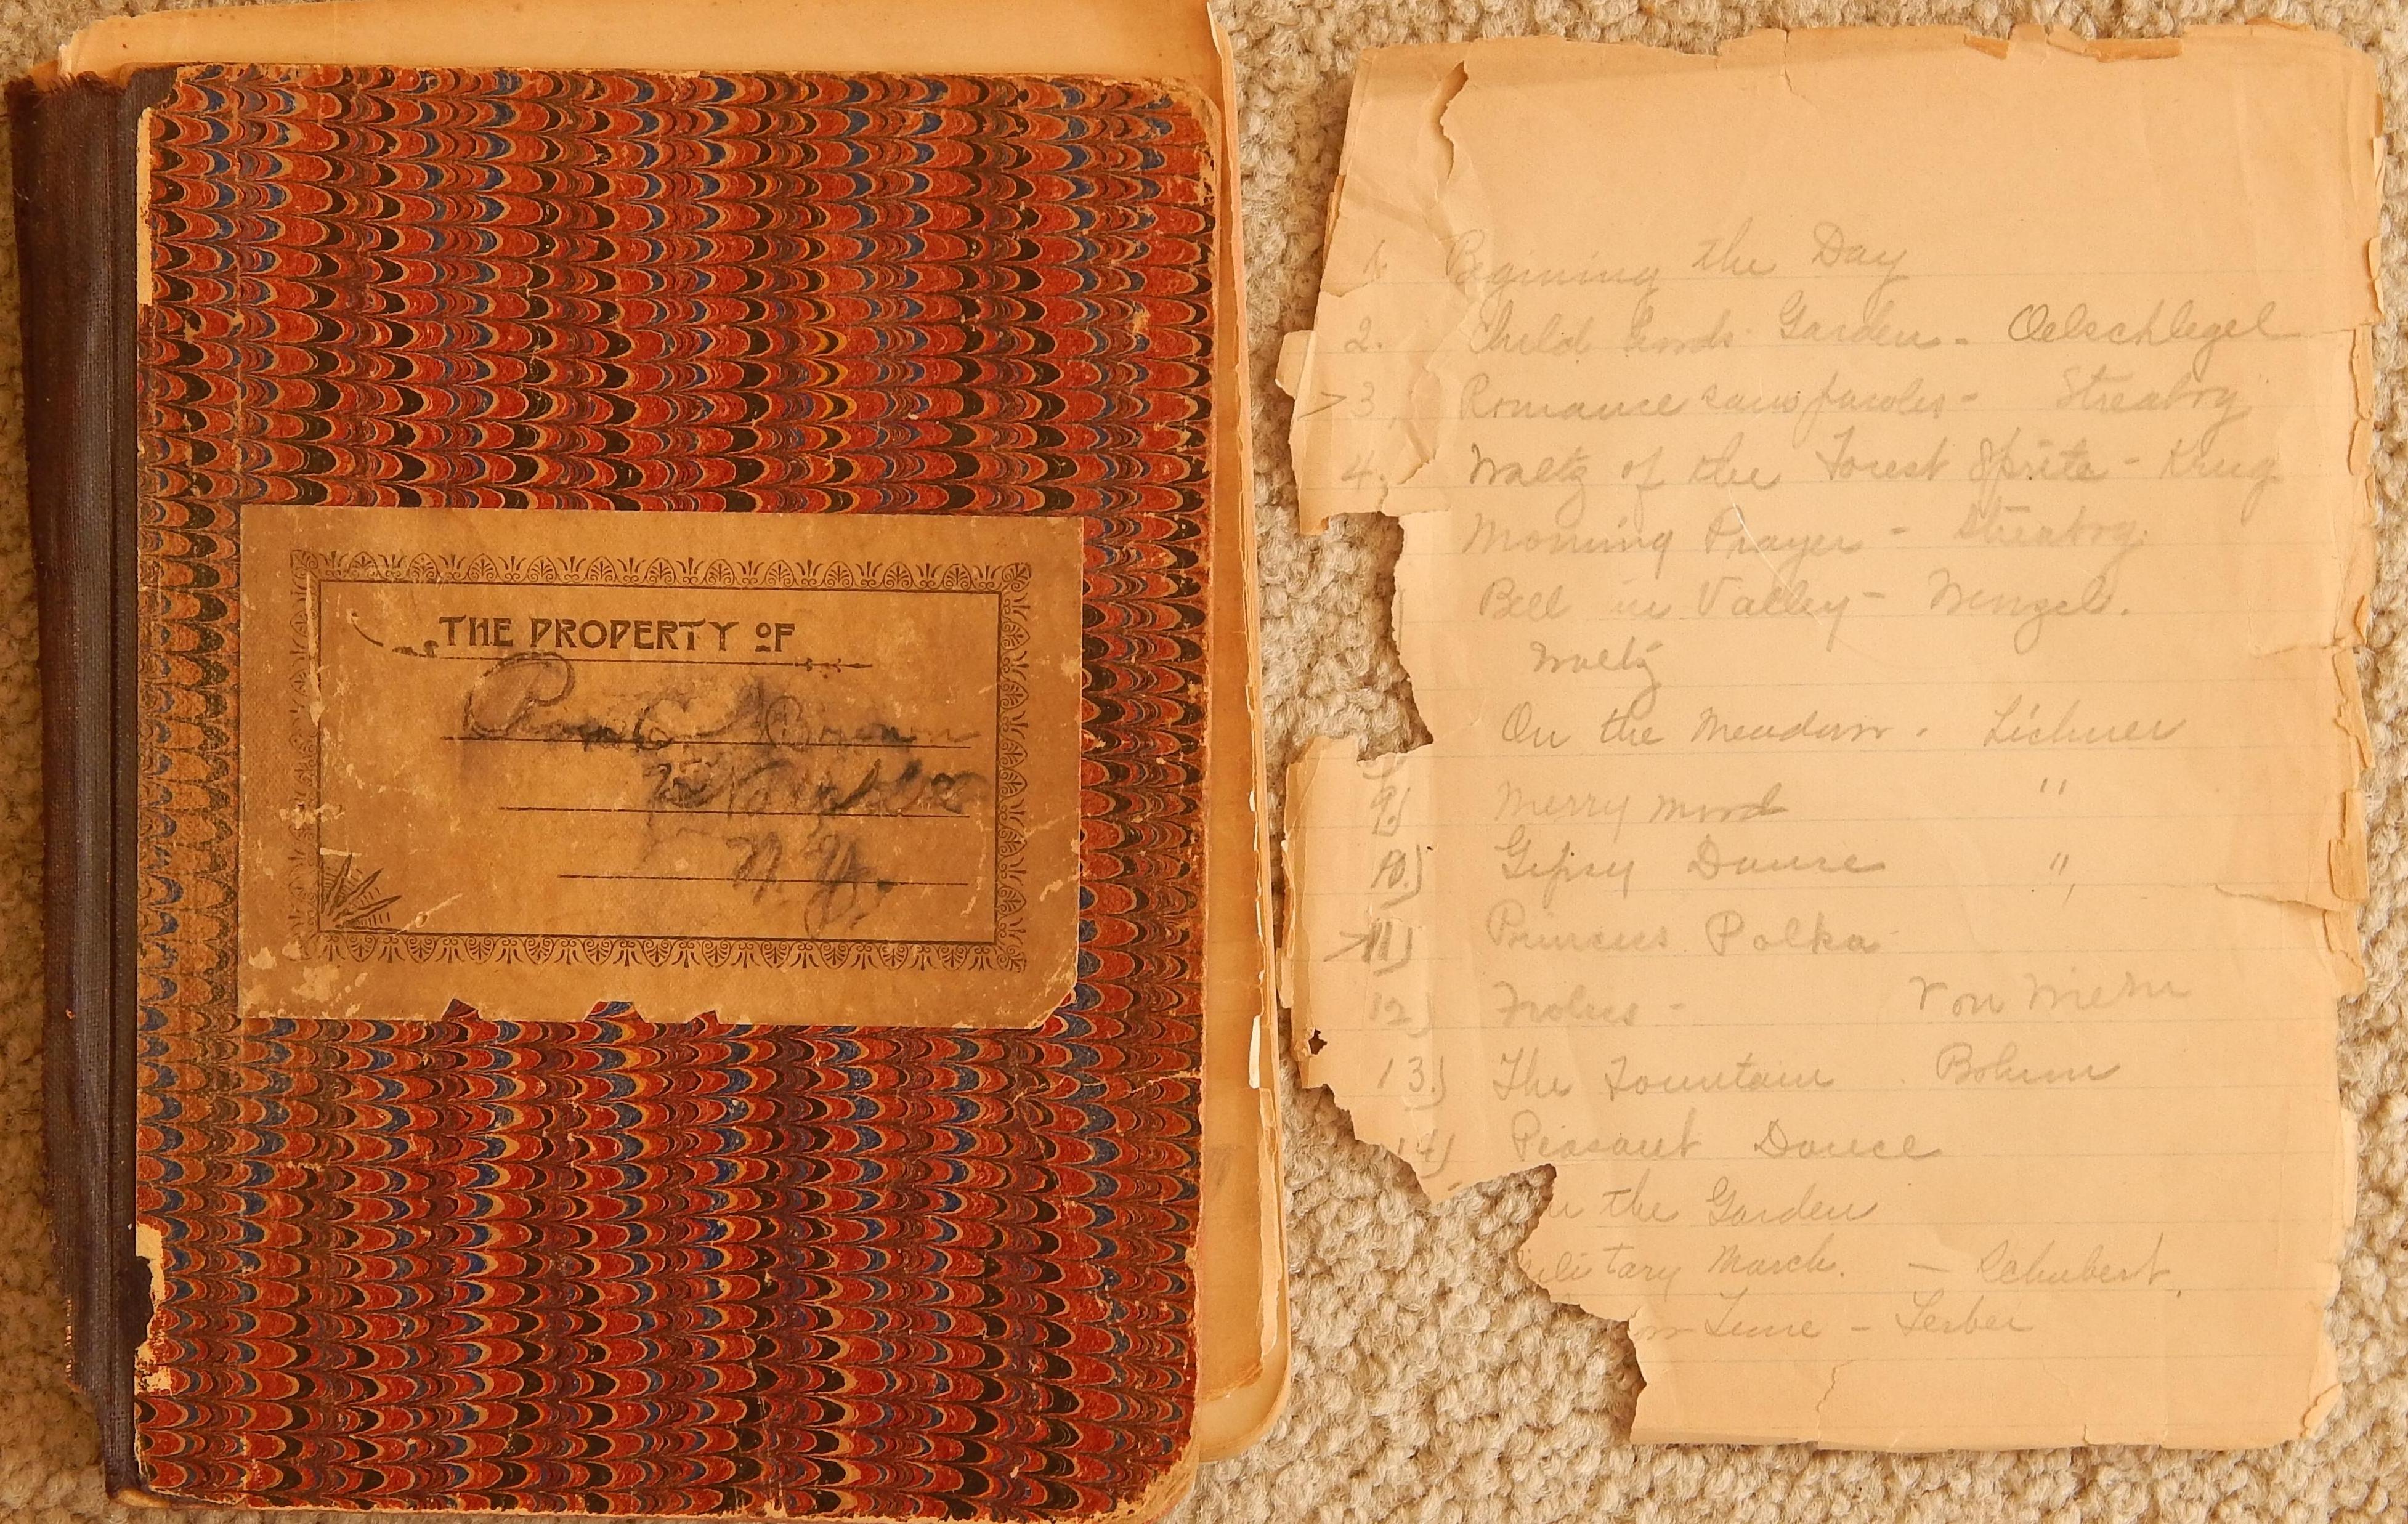 THE PROPERTY OF
Brown
N.Y.
1. Begining the Day
2. Child Garden - Oelschlegel
> 3. Romance sans paroles - Streabog
4. Waltz of the Forest Sprite - Krug
Morning Prayer - Streabog
Bell in Valley - Wengels.
Waltz
On the Meadow. Lichner
9.) Merry Mood "
10.) Gipsy Dance "
> 11) Princess Polka
12.) Frolics -
13.) The Fountain Bohm
14) Peasant Dance
n the Garden
ilitary March. - Schubert.
Tune - Ferber